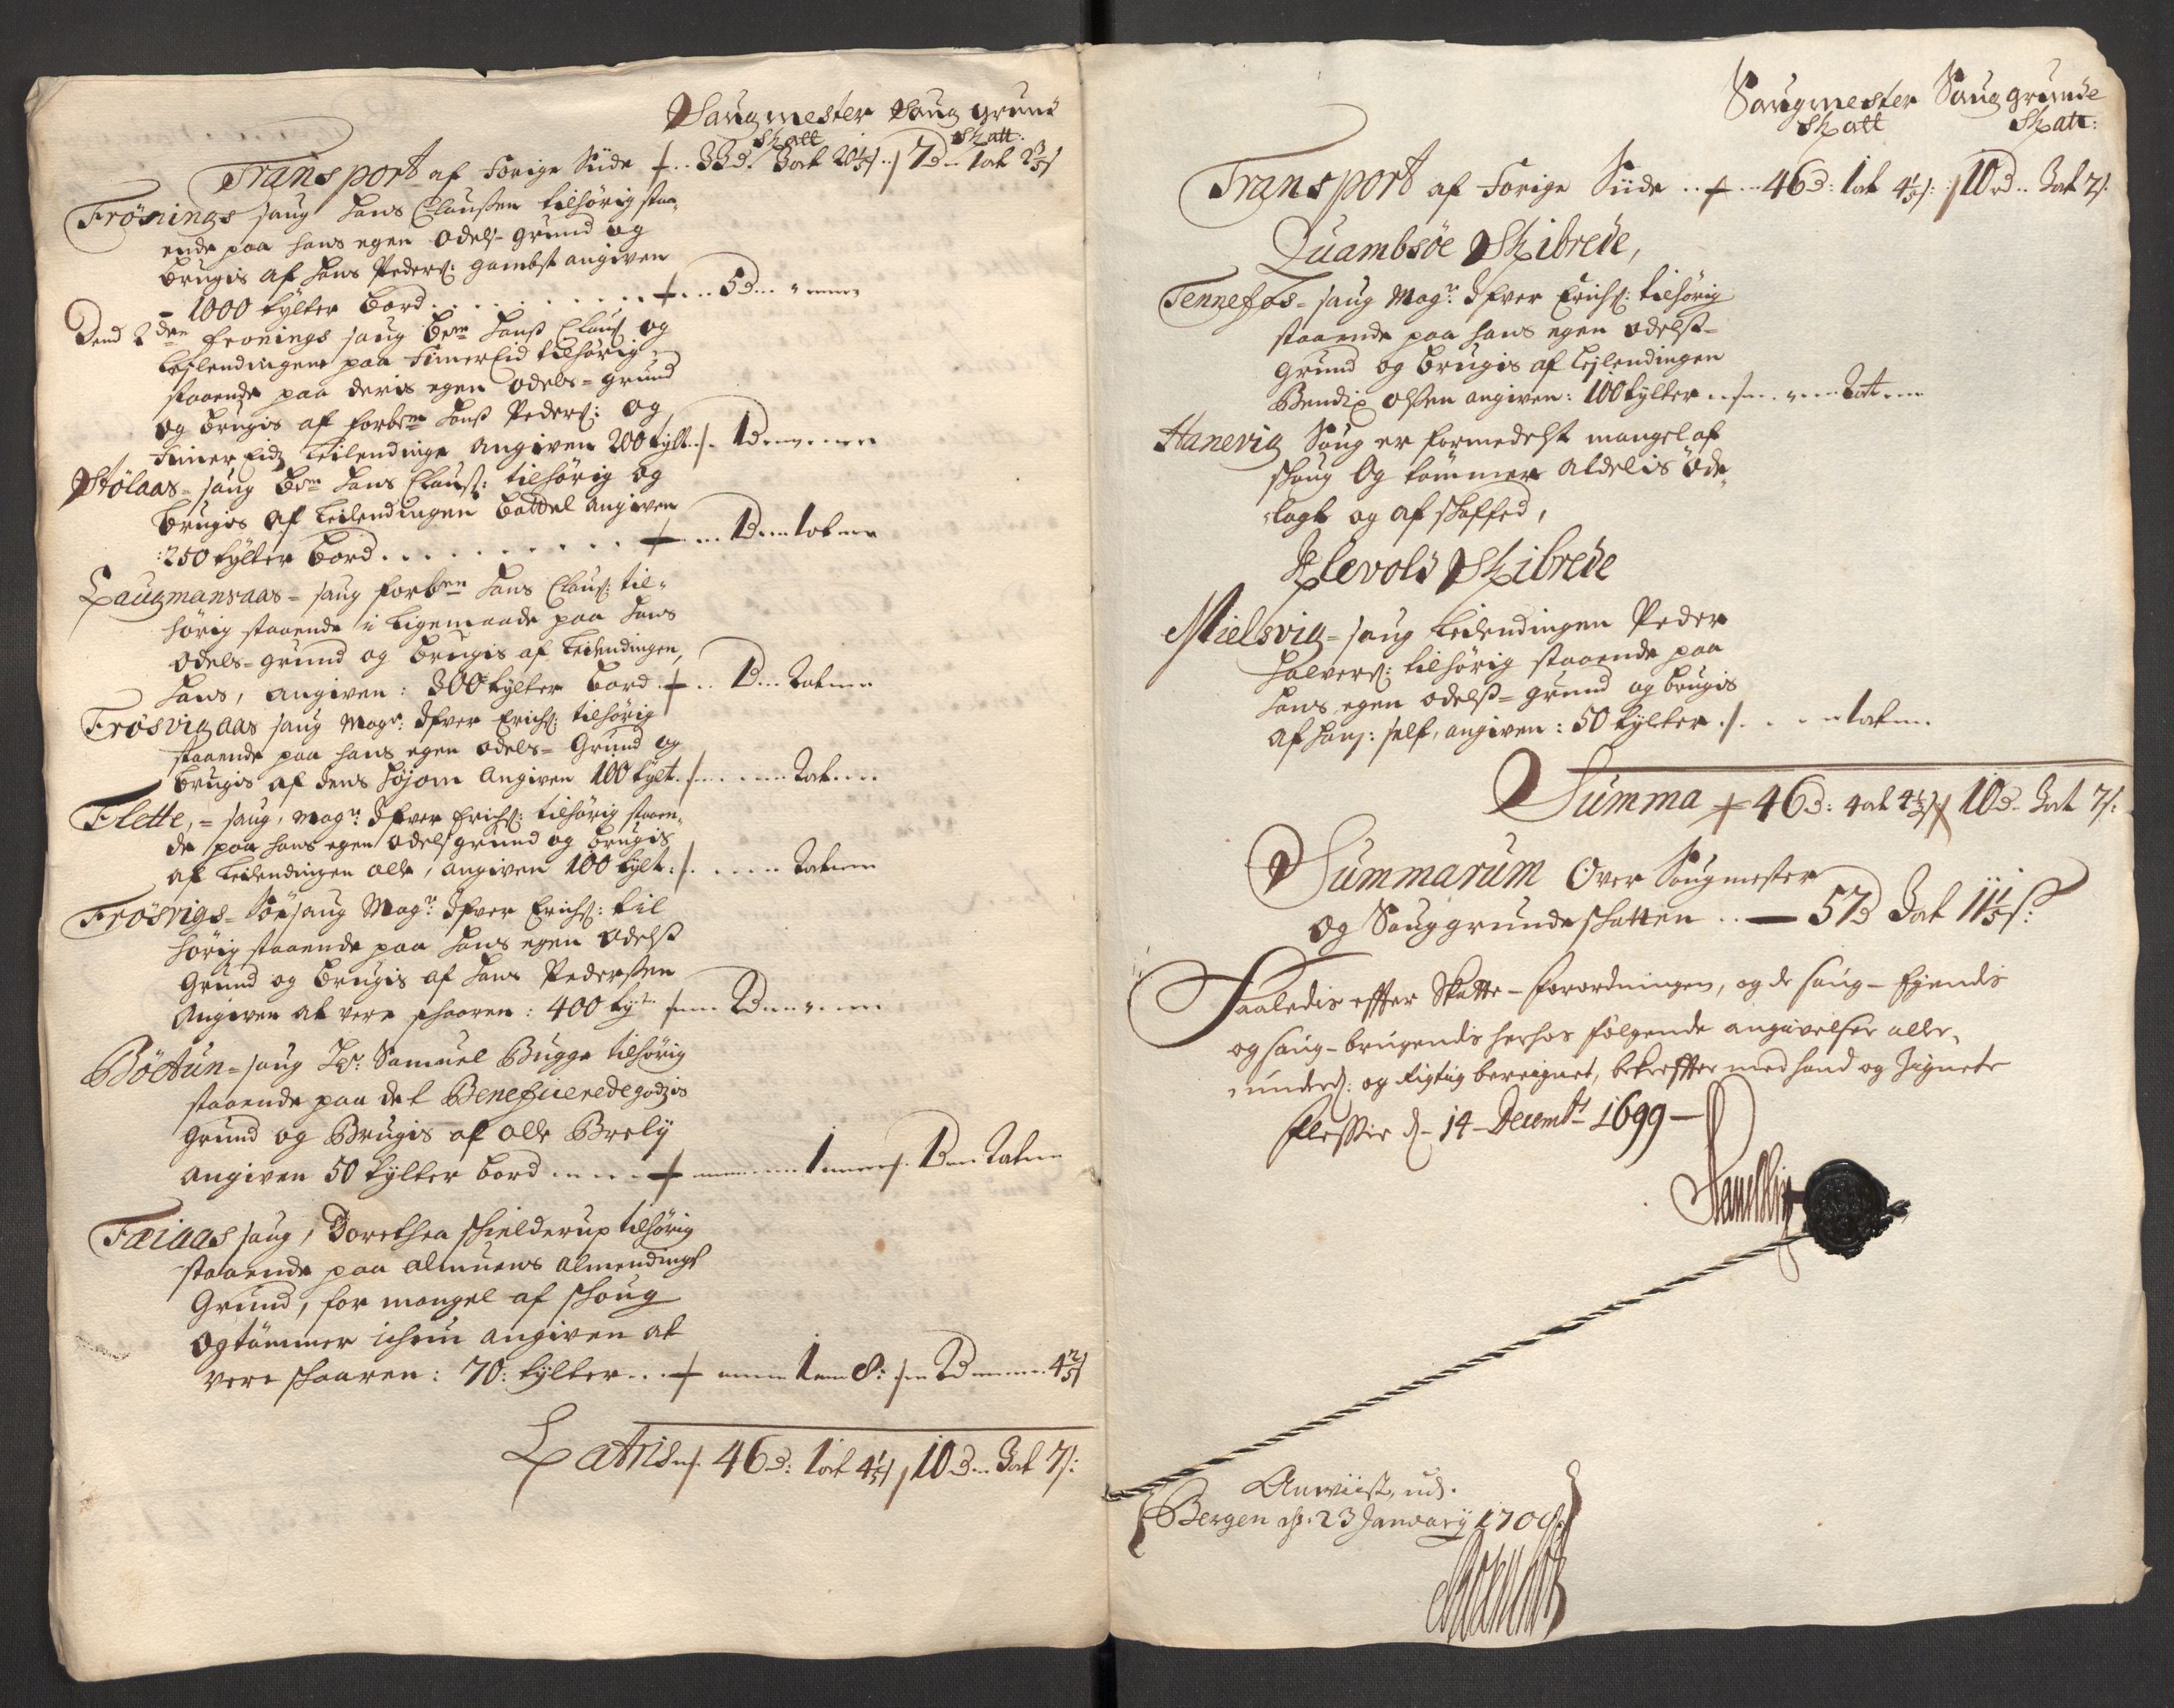 Saugmester Saug grund
Skatt Skatt:
Transport af Forige Siide 33d. 3ort 20 1/5s 7d 1ort 2 3/5s
Frönings saug Hans Claussen tilhörig staa-
ende paa hans egen Odels-grund og
brugis af Hans Peders: gambst angiven
1000 tylter bord 5d
Dend 2den Fronings saug bem Hans Claus og
Leylendingene paa Fimreid tilhörig
staaende paa deris egen Odels-grund
og brugis af forbem Hans Peders: og
Leilendinge angiven 200 tylt 1d
Stölaas-saug bem Hans Clauss: tilhörig og
brugis af Leilendingen angiven
:250 tylter bord 1d 1ort
Laugmansaas-saug forben Hans Claus: til-
hörig staaende i ligemaade paa Hans
Odels-grund og brugis af Leilendingen,
Hans, angiven: 300 tylter bord 1d 2ort
Frösvigaas saug Magr: Ifver Erichs: tilhörig
staaende paa hans egen odels-Grund og
brugis af Jens angiven 100 tylt 2ort
Flette,-saug, Magr: Ifver Erichs: tilhörig staaen-
de paa hans egen odelsgrund og brugis
af Leilendingen Olle, angiven 100 tylt: 2ort
Frösvigs-Söe saug Magr: Ifver Erichs: til
hörig staaende paa hans egen Odelss
Grund og brugis af Hans Pederssen
Angiven at vere schaaren: 400 tyt 2d
Böetun-saug Hr: Samuel Bugge tilhörig
staaende paa det Beneficeredegodzis
Grund og Brugis af Olle
angiven 50 tylter bord 1 1d 2ort
Fæiaas saug, Dorethea Schielderup tilhörig
staaende paa almuens almendings
Grund, for mangel af Schoug
og tömmer ichun angiven at
vere schaaren: 70: tylter 1 8: 2d 4 2/5s
Latris 46d: 1ort 4 1/5s 10d 3ort 7s:
Saugmester Saug grunde
Skatt Skatt:
Transport af Forige Siide 46d: 1ort 4 1/5s: 10rd 3ort 7s
Quambsöe Skibrede,
Tennefos-saug Magr: Ifver Erichs: tilhörig
staaende paa hans egen odelss-
Grund og brugis af Leylendingen
Bendix Olssen angiven: 100 tylter 2ort
Hanevig Saug er formedelst mangel af
schoug Og tömmer aldelis öde-
lagt og afschaffed,
Klevold Skibrede
Mielsvig-saug Leilendingen Peder
Halvers: tilhörig staaende paa
hans egen odelss-grund og brugis
af hans: self, angiven: 50 tylter 1ort
Summa 46d: 4ort 4 1/5s 10d 3ort 7s:
Summarum Over Saugmester
og Sauggrundeschatten 57d 3ort 11 1/5s:
Saaledis effter Skatte-forordningen, og de saug-Ejendis
og saug-brugendis herhos følgende angivelser aller-
underd: og Rigtig beregnet, bekreffter med haand og Zignete
d. 14 Decembr 1699
Anviist, ud.
Bergen d. 23 January 1700